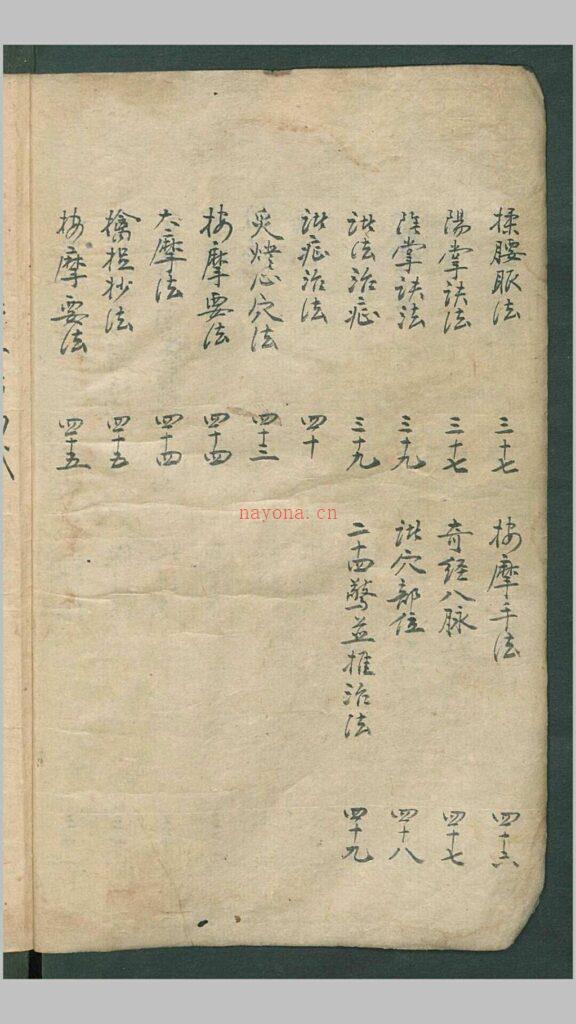 揉腰眼法 三十七
陽掌訣法 三十七
陰掌訣法 三十九
諸法治症 三十九
諸症治法 四十
灸燈心穴法 四十三
按摩要法 四十四
大摩法 四十四
擒捉抄法 四十五
按摩要法 四十五
按摩手法 四十六
奇經八脉 四十七
諸穴部位 四十八
二十四驚並推治法 四十九
nayona.cn